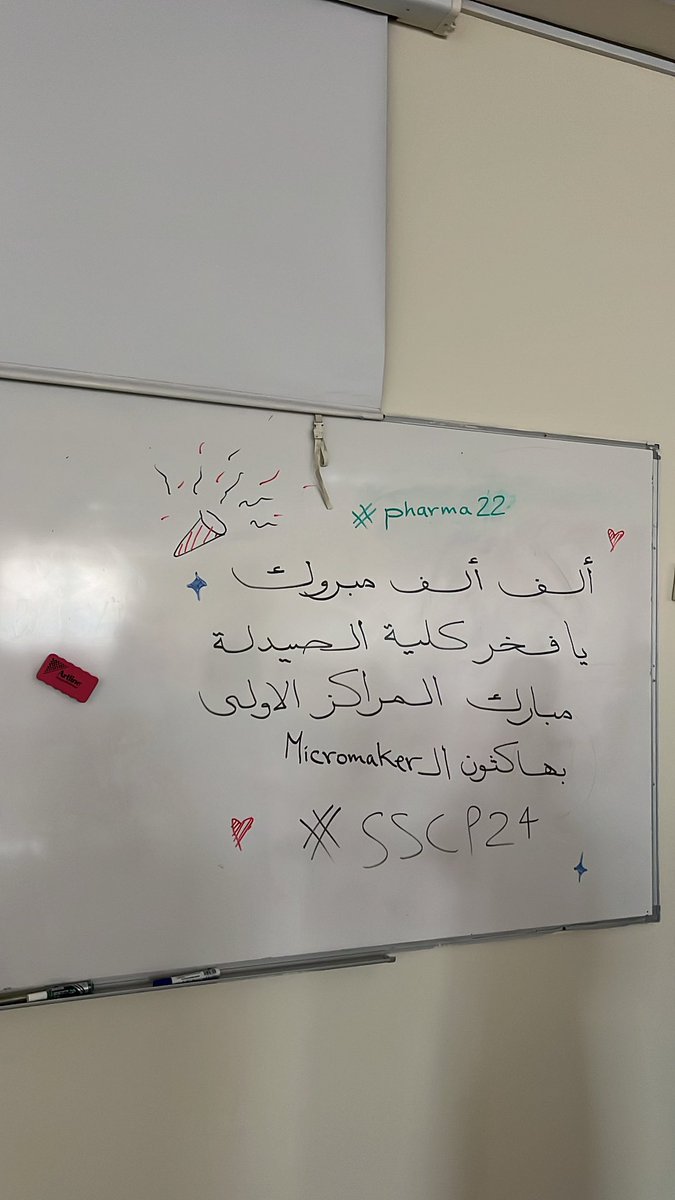 #pharma22
ألف ألف مبروك
يا فخر كلية الصيدلة
مبارك المراكز الاولى
بهاكثون الـ Micromaker
#SSCP24
Artline